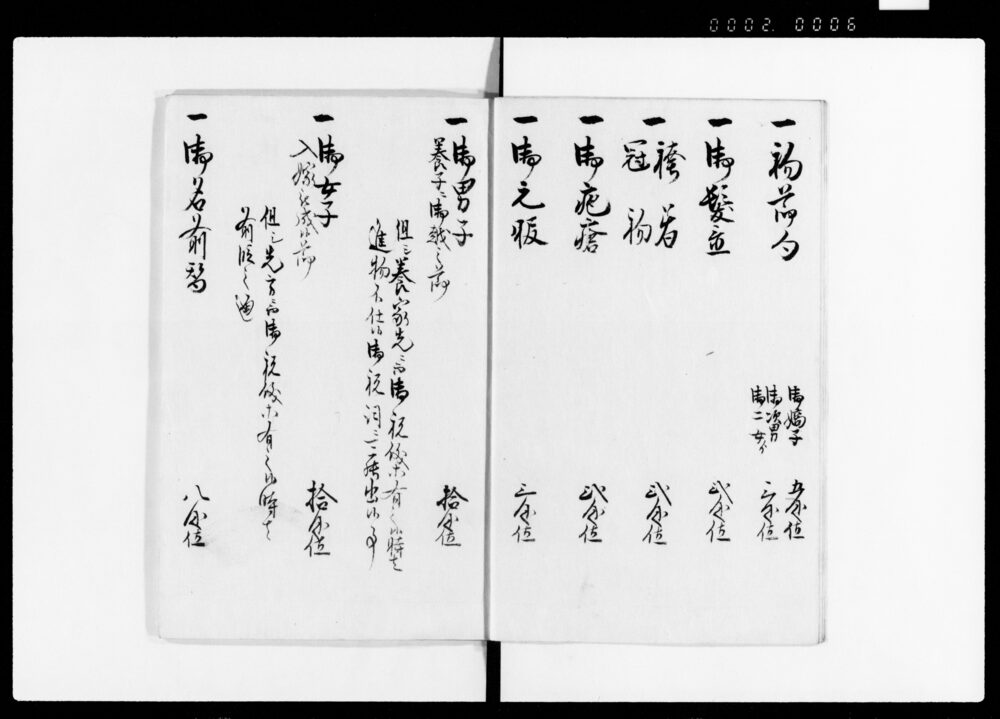 0002. 0006
一初節句
御嫡子 五匁位
御次男
御二女ゟ 三匁位
一御髪立 弐匁位
一袴着
冠初 弐匁位
一御疱瘡 弐匁位
一御元服 三匁位
一御男子
養子ニ御越之節 拾匁位
但シ養家先ゟ御祝儀等有之候時は
進物不仕候御祝詞ニ而罷出候事
一御女子
入嫁被成候節 拾匁位
但シ先方ゟ御祝儀等有之候時は
前段之通
一御名前替 八匁位